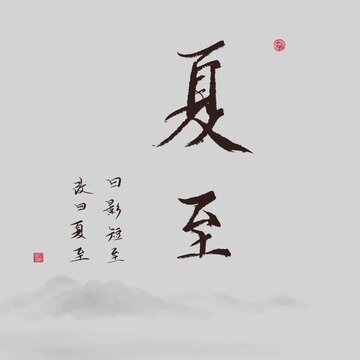 夏至
日影短至
故曰夏至